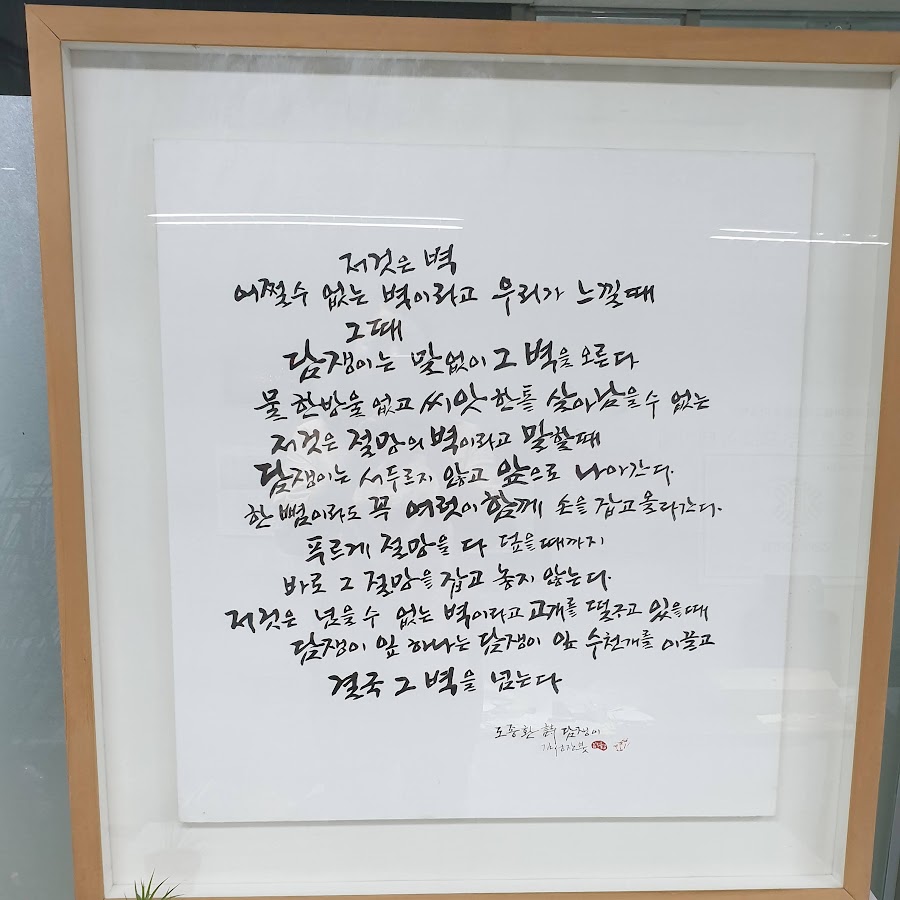 저것은 벽
어쩔수 없는 벽이라고 우리가 느낄때
그때
담쟁이는 말없이 그 벽을 오른다
물 한방울 없고 씨앗 한톨 살아남을수 없는
저것은 절망의 벽이라고 말할때
담쟁이는 서두르지 않고 앞으로 나아간다.
한 뼘이라도 꼭 여럿이 함께 손을 잡고 올라간다.
푸르게 절망을 다 덮을때까지
바로 그 절망을 잡고 놓지 않는다.
저것은 넘을수 없는 벽이라고 고개를 떨구고 있을때
담쟁이 잎 하나는 담쟁이 잎 수천개를 이끌고
결국 그 벽을 넘는다
도종환 詩 담쟁이